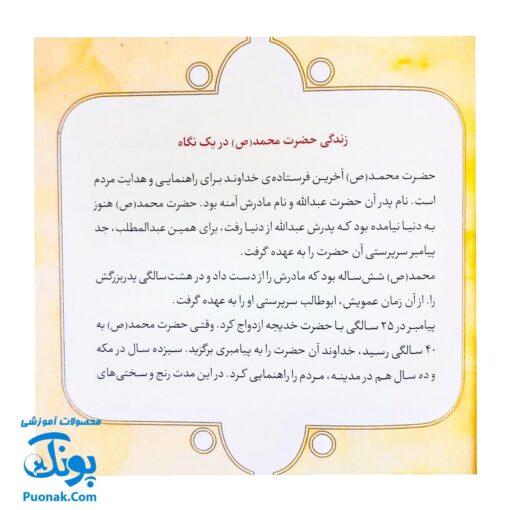 زندگی حضرت محمد(ص) در یک نگاه
حضرت محمد(ص) آخرین فرستاده‌ی خداوند برای راهنمایی و هدایت مردم
است. نام پدر آن حضرت عبدالله و نام مادرش آمنه بود. حضرت محمد(ص) هنوز
به دنیا نیامده بود که پدرش عبدالله از دنیا رفت، برای همین عبدالمطلب، جد
پیامبر سرپرستی آن حضرت را به عهده گرفت.
محمد(ص) شش‌ساله بود که مادرش را از دست داد و در هشت‌سالگی پدربزرگش
را. از آن زمان عمویش، ابوطالب سرپرستی او را به عهده گرفت.
پیامبر در ۲۵ سالگی با حضرت خدیجه ازدواج کرد. وقتی حضرت محمد(ص) به
۴۰ سالگی رسید، خداوند آن حضرت را به پیامبری برگزید. سیزده سال در مکه
و ده سال هم در مدینه، مردم را راهنمایی کرد. در این مدت رنج و سختی‌های
محصولات آموزشی
پونک
Puonak.Com